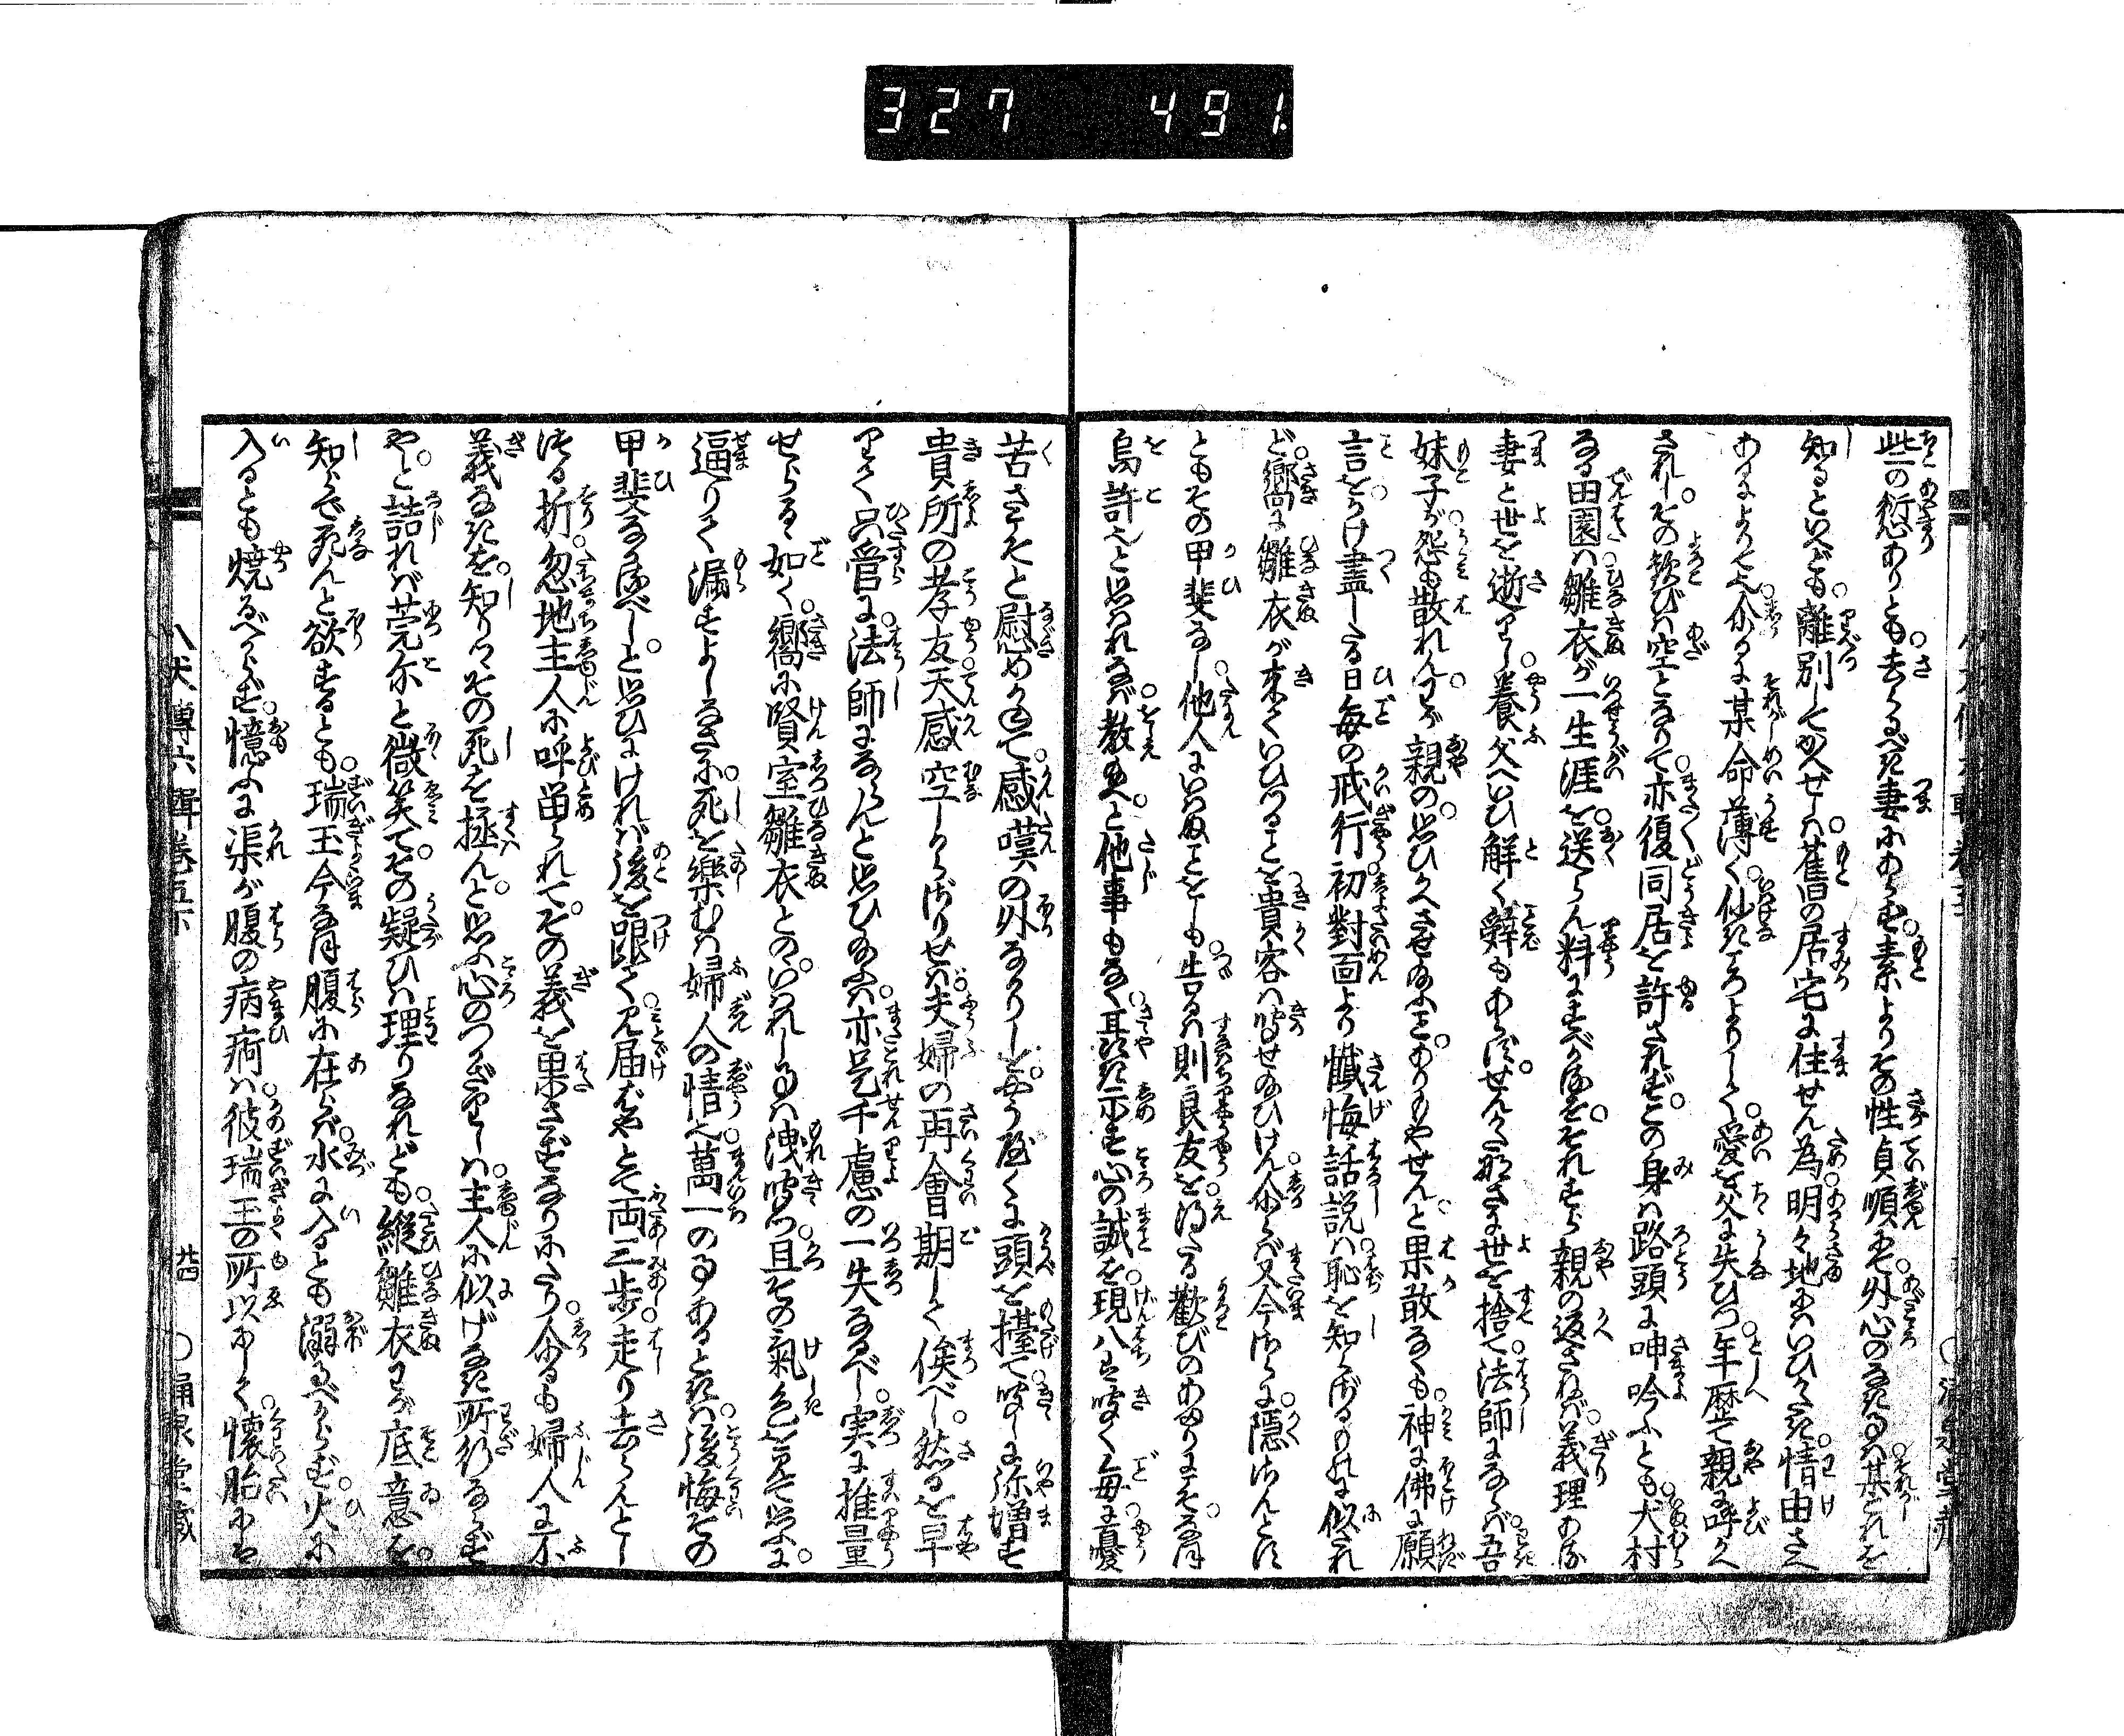 327 491
些の愆ありとも。去らるべき妻にあらず。素よりその性貞順にて。外心のなき事は。某これを
知るといへども。離別して返せしは。舊の居宅に住せん為。明々地にはいひがたき。情由さへ
あるによりてなり。尓るに某命薄く。仇きころよりして。愛を父に失ひつ。年歴て親に呼かへ
されし。その歓びは空となりて。亦復同居を許されず。この身は路頭に呻吟ふとも。犬村
なる田園は。雛衣が一生涯を。送らん料にすべかるを。それすら親の返さねば。義理ある
妻と世を逝りし。養父へいひ解く辞もあらず。せんかたなさに世を捨て。法師にならば吾
妹子が。怨も散れん。わが親の。思ひかへさせ給ふこ。ありもやせんと果敢なくも。神に佛に願
言を。かけ盡したる日毎の戒行。初對面より懺悔話説は。恥を知らざるものに似たれ
ど。嚮に雛衣が来ていひつることを。貴客は聞せ給ひけん。尓らば又今さらに。隱さんとす
ともその甲斐なし。他人にいはぬことをしも。告るは則良友を。得たる歓びのあまりにこそ。な
烏許と思はれなば教給へ。と他事もなく。耳語き示す心の誠を。現八は聞く毎に。憂
苦さこそと慰めかねて。感嘆の外なかりしを。やうやくに頭を擡て。聞しに弥増す
貴所の孝友。天感空しからざりせば。夫婦の再會期して俟べし。然るを早
りて只管に。法師にならんと思ひ給ふは。亦是千慮の一失なるべし。実に推量
せらるる如く。嚮に賢室雛衣との。いはれし事は洩聞つ。且その氣色を見て思ふに。
逼りて漏すよしなきに。死を樂むは婦人の情也。萬一の事あるときは。後悔その
甲斐なかるべし。と思ひにければ後を跟て。見届ばやとて両三歩。走り去らんとし
つる折。忽地主人に呼畄られて。その義を果さずなりにたり。尓るも婦人に不
義なきを。知りつつその死を拯んと。思ふ心のつかざりしは。主人に似げなき所行ならず
や。と詰れば莞尓と微笑て。その疑ひは理りなれども。縦雛衣わが底意を。
知らで死んと欲するとも。瑞玉今なほ腹に在らば。水に入るとも溺るべからず。火に
入るとも焼るべからず。憶ふに渠が腹の病痾は。彼瑞玉の所以にして。懐胎には
八犬傳六輯卷五下
廿四
○涌泉堂藏